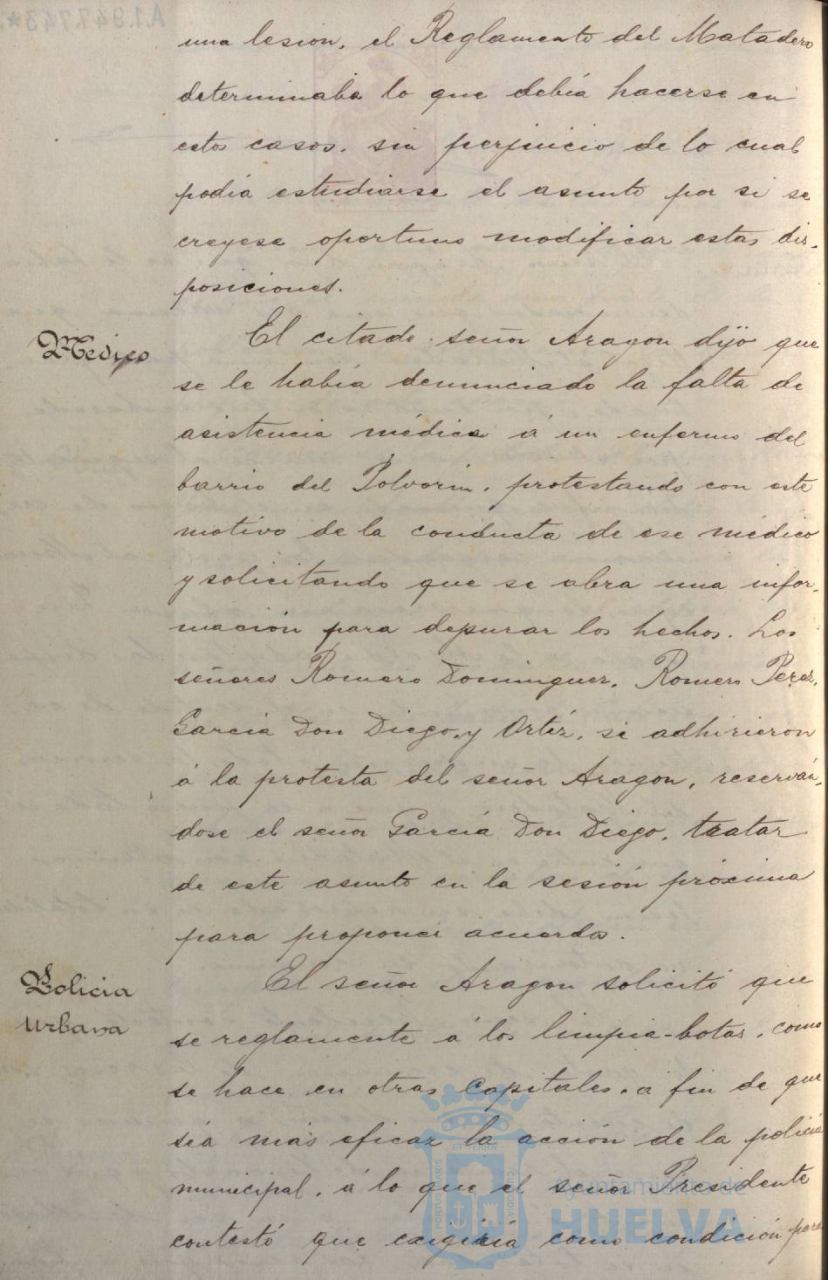 A1.947.743*
una lesion, el Reglamento del Matadero
determinaba lo que debía hacerse en
estos casos, sin perjuicio de lo cual
podía estudiarse el asunto por si se
creyese oportuno modificar estas dis-
posiciones.
Medico
El citado señor Aragon dijo que
se le había denunciado la falta de
asistencia médica á un enfermo del
barrio del Polvorin, protestando con este
motivo de la conducta de ese médico
y solicitando que se abra una infor-
mación para depurar los hechos. Los
señores Romero Dominguez, Romero Perez,
García Don Diego, y Ortíz, se adhirieron
á la protesta del señor Aragon, reserván-
dose el señor García Don Diego, tratar
de este asunto en la sesión próxima
para proponer acuerdo.
Policia
Urbana
El señor Aragon solicitó que
se reglamente á los limpia-botas, como
se hace en otras Capitales, a fin de que
sea más eficaz la acción de la policia
municipal, á lo que el señor Presidente
contestó que exigiria como condición para
Ayuntamiento de
HUELVA